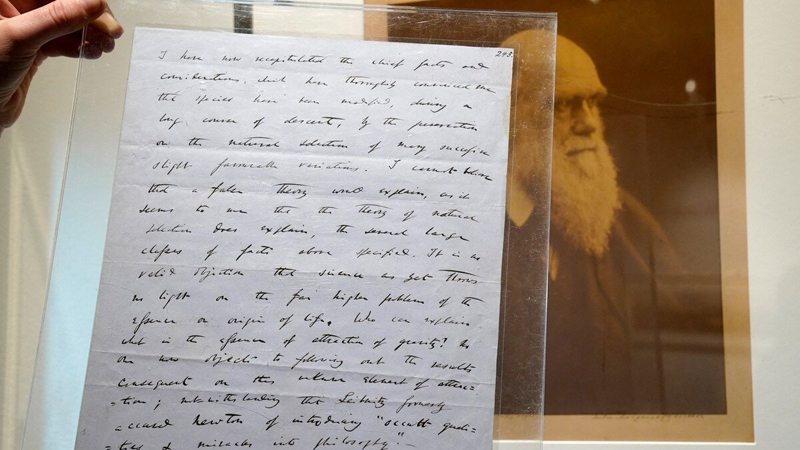 243.
I have now recapitulated the chief facts and
considerations, which have thoroughly convinced me
that species have been modified, during a
long course of descent, by the preservation
or the natural selection of many successive
slight favourable variations. I cannot believe
that a false theory would explain, as it
seems to me that the theory of natural
selection does explain, the several large
classes of facts above specified. It is no
valid objection that science as yet throws
no light on the far higher problem of the
essence or origin of life. Who can explain
what is the essence of attraction of gravity? No
one now objects to following out the results
consequent on this unknown element of attrac-
-tion; notwithstanding that Leibnitz formerly
accused Newton of introducing "occult quali-
-ties & miracles into philosophy."—